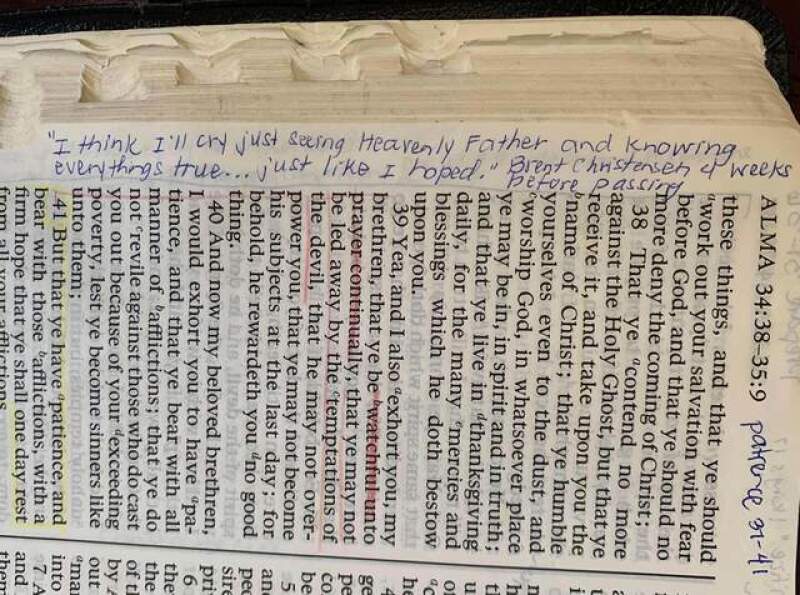 "I think I'll cry just seeing Heavenly Father and knowing
everythings true... just like I hoped." Brent Christensen 4 weeks
before passing
ALMA 34:38–35:9 patience 31-41
these things, and that ye should
"work out your salvation with fear
before God, and that ye should no
more deny the coming of Christ;
38 That ye "contend no more
against the Holy Ghost, but that ye
receive it, and take upon you the
bname of Christ; that ye humble
yourselves even to the dust, and
cworship God, in whatsoever place
ye may be in, in spirit and in truth;
and that ye live in dthanksgiving
daily, for the many emercies and
blessings which he doth bestow
upon you.
39 Yea, and I also aexhort you, my
brethren, that ye be bwatchful unto
prayer continually, that ye may not
be led away by the ctemptations of
the devil, that he may not over-
power you, that ye may not become
his subjects at the last day; for
behold, he rewardeth you dno good
thing.
40 And now my beloved brethren,
I would exhort you to have apa-
tience, and that ye bear with all
manner of bafflictions; that ye do
not crevile against those who do cast
you out because of your dexceeding
poverty, lest ye become sinners like
unto them;
41 But that ye have apatience, and
bear with those bafflictions, with a
firm hope that ye shall one day rest
from all your afflictions.